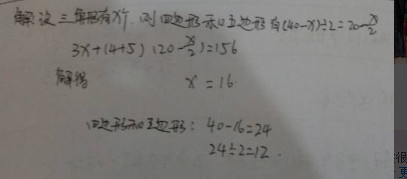 解:设三角形有x个,则四边形和五边形有(40-x)÷2=20-x/2
3x+(4+5)(20-x/2)=156
解得 x=16.
四边形和五边形: 40-16=24
24÷2=12.
很
更